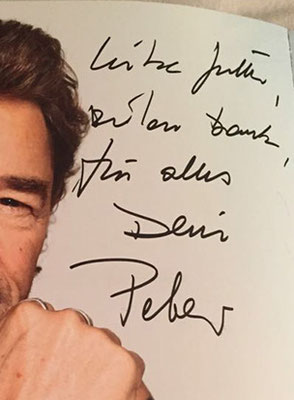 Liebe Jutta,
vielen Dank,
für alles
Dein
Peter